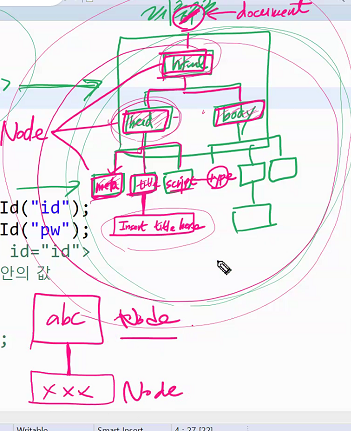 document
html
Node
head
body
meta
title
script
type
Insert title here
Id("id");
Id("pw");
id="id">
안의 값
;
abc
Node
xxx
Node
Writable
Smart Insert
4 : 27 [22]